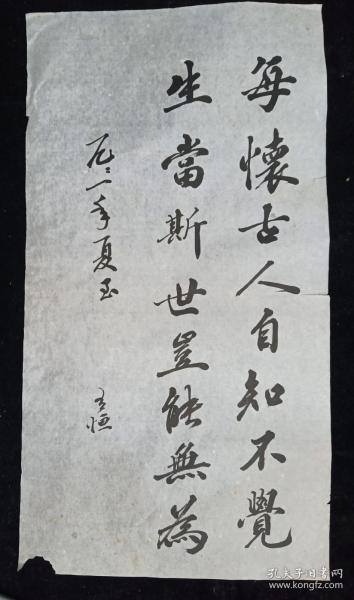 每懷古人自知不覺
生當斯世豈能無為
夏至
孔夫子旧书网
www.kongfz.com